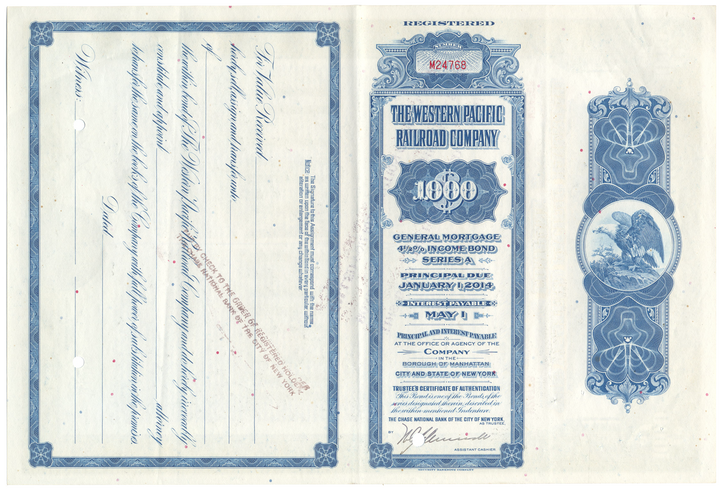 REGISTERED
NUMBER
M24768
THE WESTERN PACIFIC
RAILROAD COMPANY
$1000
GENERAL MORTGAGE
4½% INCOME BOND
SERIES A
PRINCIPAL DUE
JANUARY 1, 2014
INTEREST PAYABLE
MAY 1
PRINCIPAL AND INTEREST PAYABLE
AT THE OFFICE OR AGENCY OF THE
COMPANY
IN THE
BOROUGH OF MANHATTAN
CITY AND STATE OF NEW YORK
TRUSTEE'S CERTIFICATE OF AUTHENTICATION
This Bond is one of the Bonds, of the
series designated therein, described in
the within-mentioned Indenture.
THE CHASE NATIONAL BANK OF THE CITY OF NEW YORK
AS TRUSTEE,
BY
ASSISTANT CASHIER
For Value Received
hereby assign and transfer unto
of
the within bond of The Western Pacific Railroad Company and do hereby irrevocably
constitute and appoint attorney
to transfer the same on the books of the Company with full power of substitution in the premises
Dated
Witness:
Note: The Signature to this Assignment must correspond with the name
as written upon the face of the within Bond in every particular without
alteration or enlargement or any change whatever.
BY CHECK TO THE ORDER OF REGISTERED HOLDER
THE CHASE NATIONAL BANK OF THE CITY OF NEW YORK